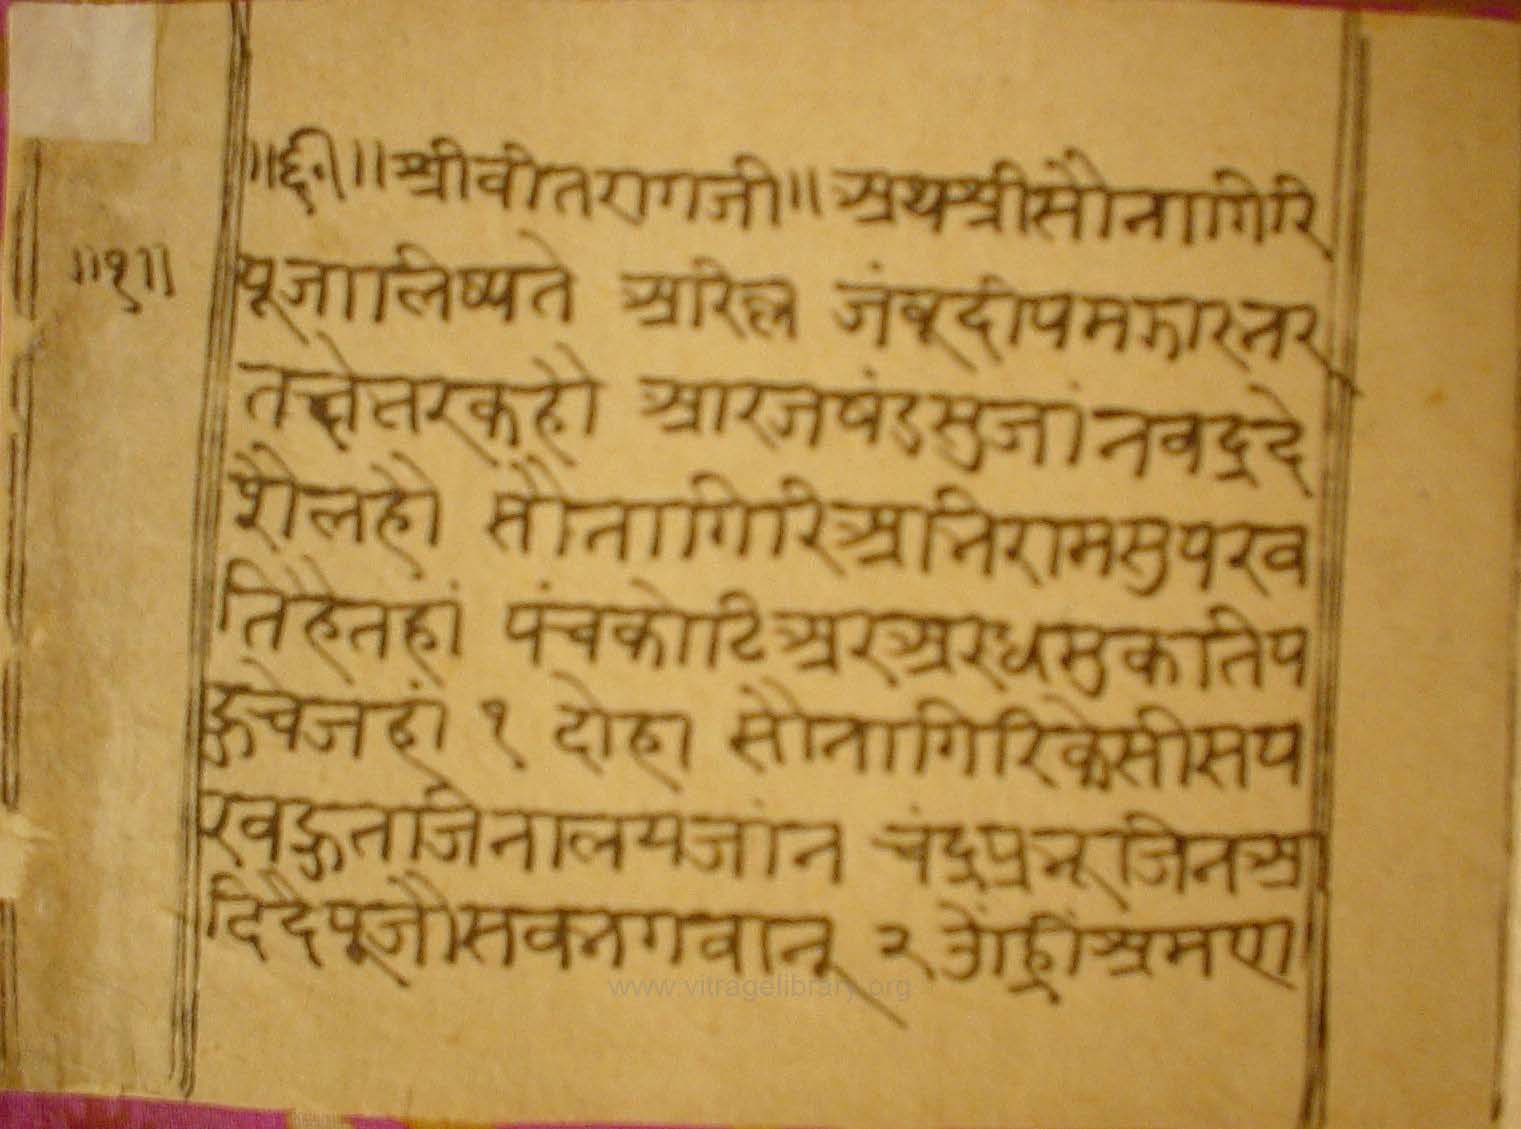 ॥६०॥ श्रीवीतरागजी॥ अथश्रीसौनागिरि
॥१॥
पूजालिष्यते अरिल्ल जंबूदीपमझारभर
तक्षेतरकहौ आरजषंडसुजांनवद्रदे
शैलहौ सौनागिरिअभिरामसुपरव
तिहैतहां पंचकोटिअरअरधमुकतिप
हुचेजहां १ दोहा सौनागिरिकेसीसप
रवहुतजिनालयजांन चंद्रप्रभूजिनआ
दिदैपूजौसवभगवान् २ उोंह्रींश्रमण
www.vitragelibrary.org